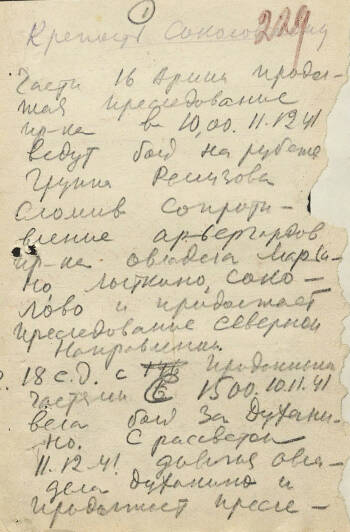 ①
Крепость Соколовскому 219
Части 16 Армии продол-
жая преследование
пр-ка в 10.00. 11.12 41
ведут бой на рубеже
Группа Ремизова
сломив сопроти-
вление арьергардов
пр-ка овладела Марьи-
но, Лыткино, Соко-
лово и продолжает
преследование северном
Направлении
18 с.д. с приданными
частями 15 00. 10.11 41
вела бой за Духани-
но. С рассветом
11.12 41. дивизия овла-
дела Духанино и
продолжает пресле-